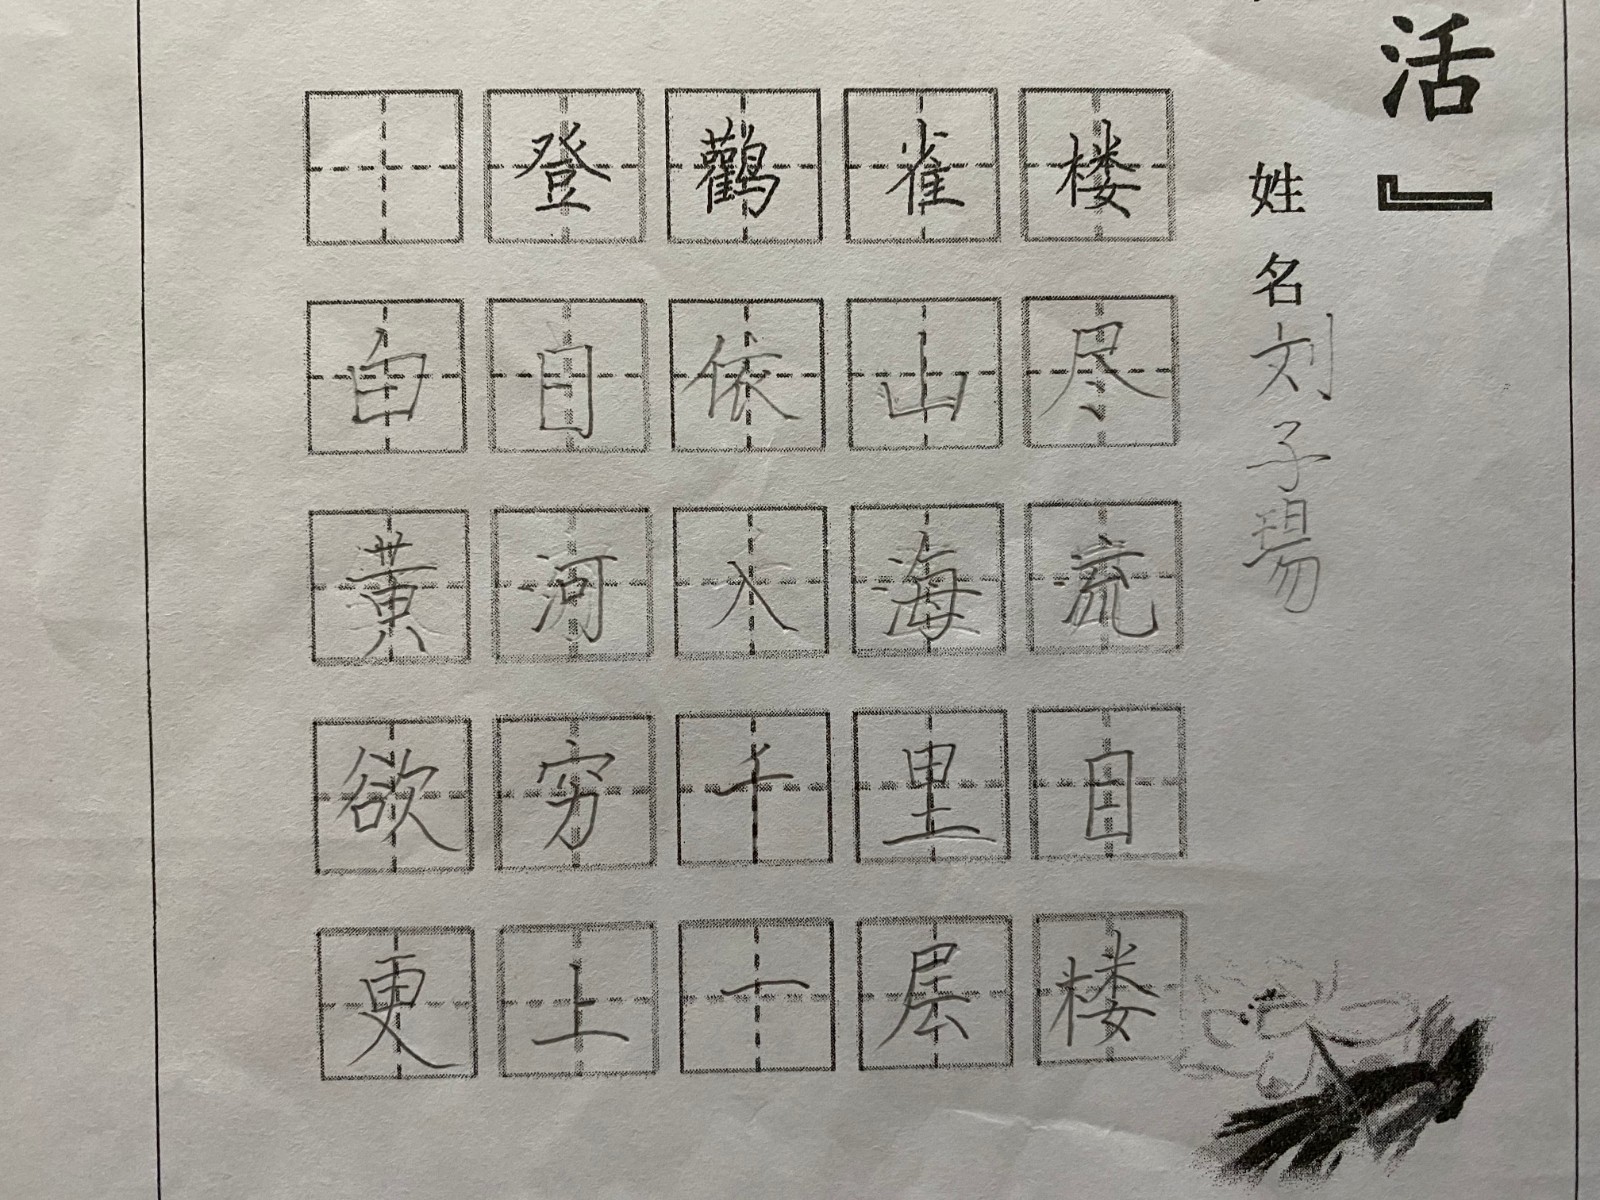 活』
姓名刘子瑒
登鸛雀楼
白目依山尽
黄河入海流
欲穷千里目
更上一层楼